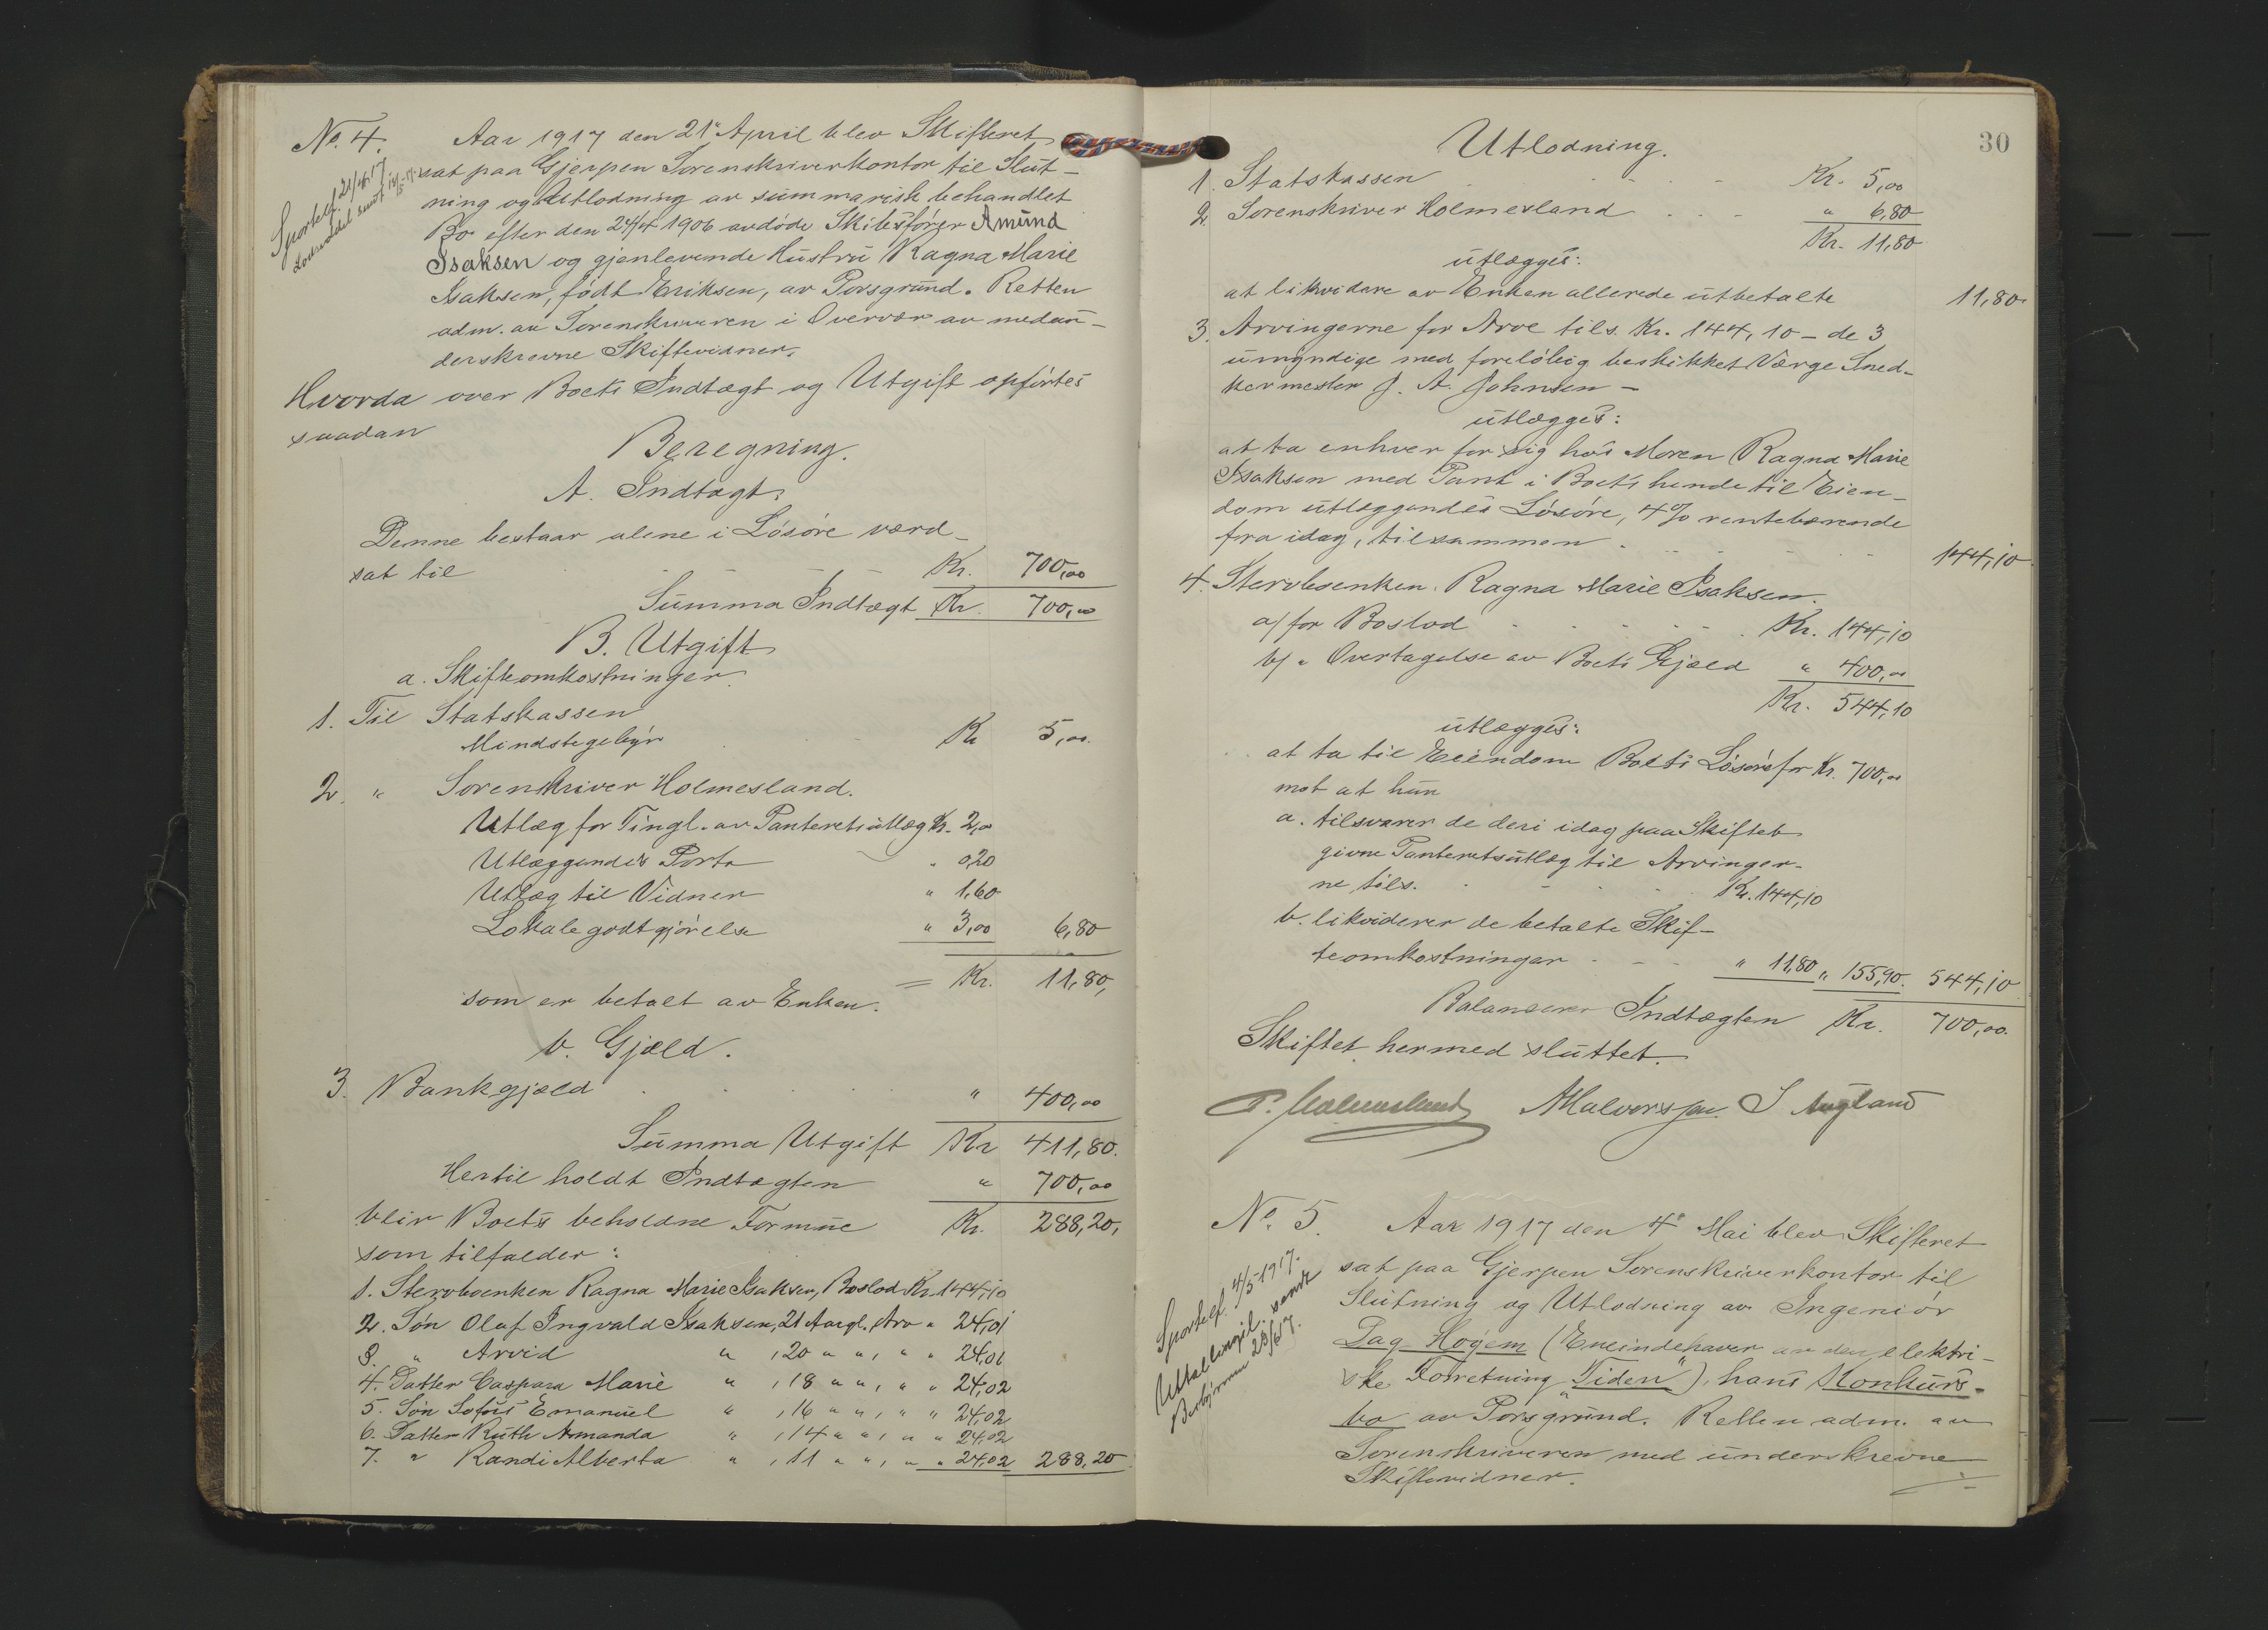 No. 4. Aar 1917 den 21' April blev Skifteret
Sportelf. 21/4 17
Lodseddel sendt
sat paa Gjerpen Sorenskriverkontor til Slut-
ning og Utlodning av summarisk behandlet
Bo efter den 24/4 1906 avdøde Skibsfører Amund
Isaksen og gjenlevende Hustru Ragna Marie
Isaksen, født Eriksen, av Porsgrund. Retten
adm. av Sorenskriveren i Overvær av medun-
derskrevne Skiftevidner.
Hvorda over Boets Indtægt og Utgift opførtes
saadan
Beregning.
A. Indtægt.
Denne bestaar alene i Løsøre værd-
sat til Kr. 700,00
Summa Indtægt Kr. 700,00
B. Utgift
a. Skifteomkostninger.
1. Til Statskassen
Mindstegebyr Kr 5,00.
2. " Sorenskriver Holmesland.
Utlæg for Tingl. av Panteretsutlæg Kr. 2,00
Utlæggendes Porto " 0,20
Utlæg til Vidner " 1,60
Lokalegodtgjørelse " 3,00 6,80
= Kr. 11,80,
som er betalt av Enken.
b. Gjæld.
3. Bankgjæld " 400,00
Summa Utgift Kr 411,80.
Hertil holdt Indtægten " 700,00
blir Boets beholdne Formue Kr. 288,20,
som tilfalder:
1. Stervboenken Ragna Marie Isaksen, Boslod Kr. 144,10
2. Søn Olaf Ingvald Isaksen, 21 Aar gl. Arv " 24,01
3. " Arvid " , 20 " " , " " 24,01
4. Datter Caspara Marie " , 18 " " , " " 24,02
5. Søn Sofus Emanuel " , 16 " " , " " 24,02
6. Datter Ruth Armanda " , 14 " " , " " 24,02
7. " Randi Alberta " , 11 " " , " " 24,02 288,20
30
Utlodning.
1. Statskassen Kr. 5,00
2. Sorenskriver Holmesland " 6,80
Kr. 11,80
utlægges:
at likvidere av Enken allerede utbetalte 11,80
3. Arvingerne for Arv tils. Kr. 144,10 - de 3
umyndige med foreløbig beskikket Værge Sned-
kermester J. A. Johnsen -
utlægges:
at ta enhver for sig hos Moren Ragna Marie
Isaksen med Pant i Boets hende til Eien-
dom utlæggendes Løsøre, 4% rentebærende
fra idag, tilsammen 144,10
4. Stervboenken Ragna Marie Isaksen.
a/ for Boslod Kr. 144,10
b/ " Overtagelse av Boets Gjæld " 400,00
Kr. 544,10
utlægges:
at ta til Eiendom Boets Løsøre for Kr. 700,00
mot at hun
a. tilsvarer de deri idag paa Skiftet
givne Panteretsutlæg til Arvinger-
ne tils. Kr. 144,10
b. likviderer de betalte Skif-
teomkostninger " 11,80 " 155,90. 544,10
Balancerer Indtægten Kr. 700,00.
Skiftet hermed sluttet.
P. Holmesland AHalvorsen S Augland
No. 5. Aar 1917 den 4' Mai blev Skifteret
Sportelf. 4/5 1917.
sendt
sat paa Gjerpen Sorenskriverkontor til
Slutning og Utlodning av Ingeniør
Dag Høyem (Eneindehaver av den elektri-
ske Forretning "Tiden"), hans Konkurs-
bo av Porsgrund. Retten adm. av
Sorenskriveren med underskrevne
Skiftevidner.